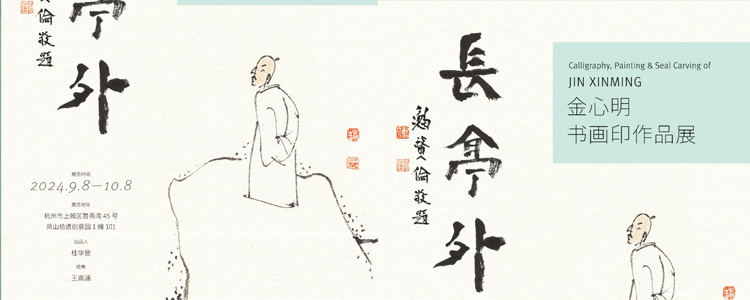 亭
外
倫敬題
展览时间
2024.9.8—10.8
展览地点
杭州市上城区笤帚湾 45 号
凤山拾遗创意园 1 幢 101
出品人
统筹
王高涵
長
亭
外
倫敬題
Calligraphy, Painting & Seal Carving of
JIN XINMING
金心明
书画印作品展